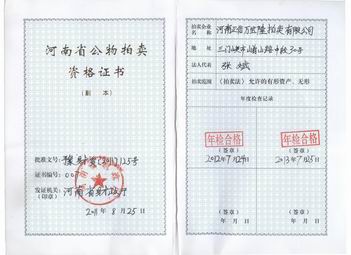 河南省公物拍卖
资格证书
（副 本）
批准文号：豫财资(2011)125号
证书编号：007
发证机关：河南省财政厅
（印章）
2011 年 8 月 25 日
拍卖企业
名称
拍卖有限公司
地址 三门峡市崤山路中段30号
法人代表 张斌
拍卖范围 （拍卖法）允许的有形资产、无形
年度检查记录
年检合格 年检合格
（签章） （签章）
2012年7月29日 2013年7月25日
（签章） （签章）
年 月 日 年 月 日